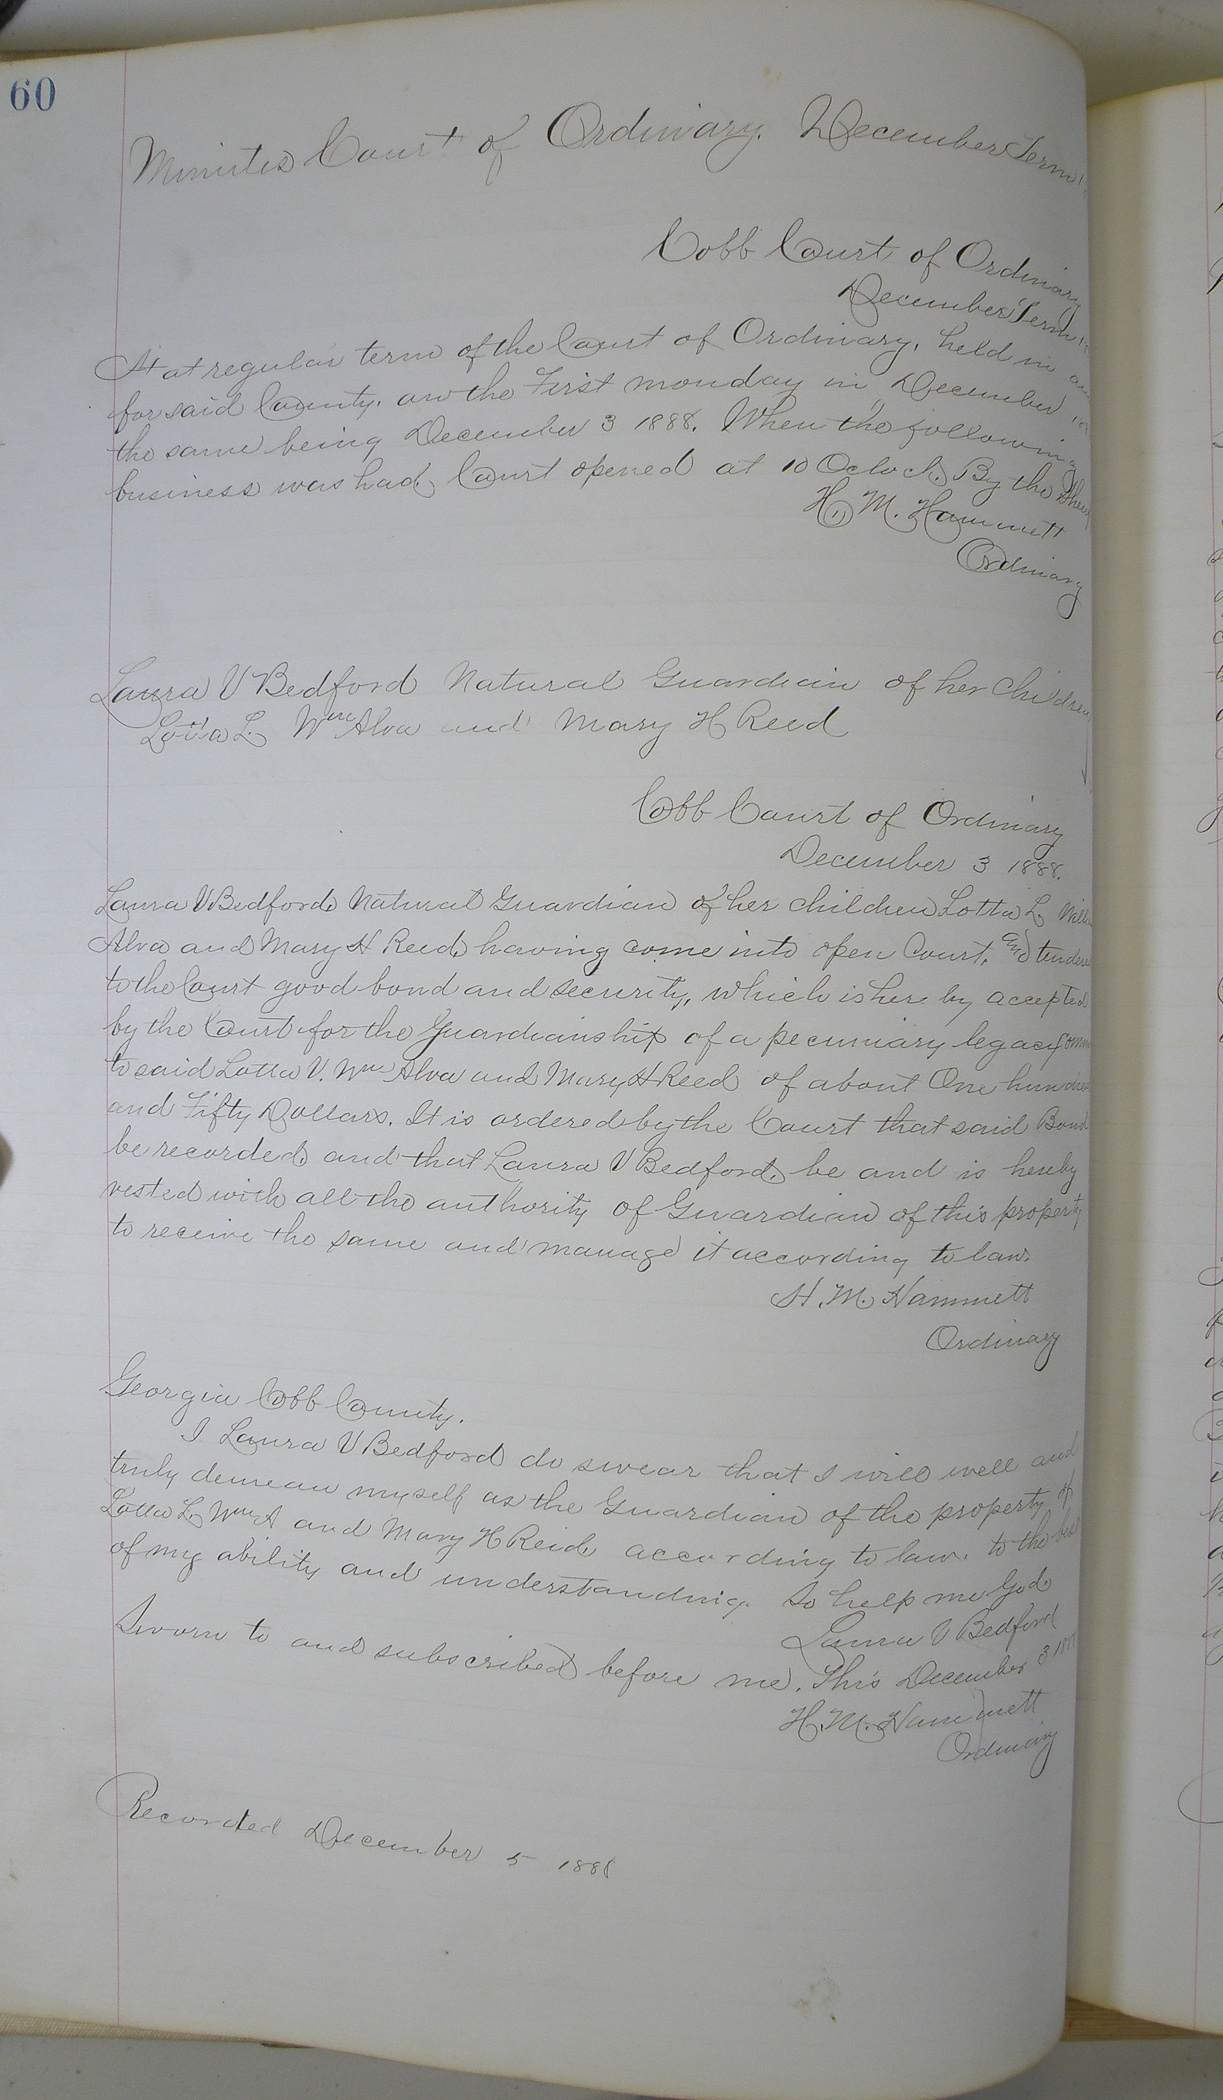 60
Minutes Court of Ordinary. December Term
Cobb Court of Ordinary
December Term
At at regular term of the Court of Ordinary, held in and
for said County. on the First monday in December
the same being December 3 1888. When the following
business was had. Court opened at 10 Oclock. By the
H. M. Hammett
Ordinary
Laura V Bedford Natural Guardian of her Children
Lotta L. Wm Alva and Mary H Reed
Cobb Court of Ordinary
December 3 1888.
Laura V Bedford Natural Guardian of her children Lotta L.
Alva and Mary H Reed having come into open Court, and
to the Court good bond and security, which is here by accepted
by the Court for the Guardianship of a pecuniary legacy
to said Lotta V. Wm Alva and Mary H Reed of about One hundred
and Fifty Dollars. It is ordered by the Court that said Bond
be recorded and that Laura V Bedford be and is hereby
vested with all the authority of Guardian of this property
to receive the same and manage it according to law.
H. M. Hammett
Ordinary
Georgia Cobb County.
I Laura V Bedford do swear that I will well and
truly demean myself as the Guardian of the property of
Lotta L. Wm A and Mary H Reid according to law. to the best
of my ability and understanding. So help me God
Laura V Bedford
Sworn to and subscribed before me. This December 3 1888
H. M. Hammett
Ordinary
Recorded December 5 1888